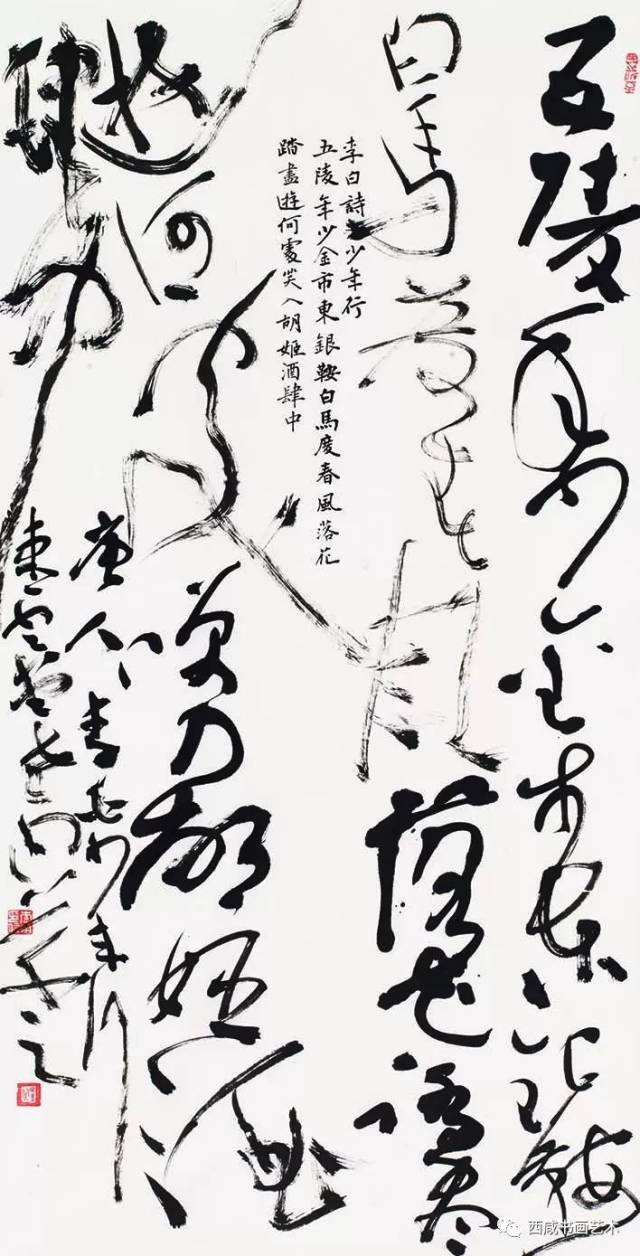 五陵年少金市东银鞍
白马度春风落花踏尽
李白詩少年行
五陵年少金市東銀鞍白馬度春風落花
踏盡遊何處笑入胡姬酒肆中
遊何处笑入胡姬酒
肆中
唐人
西咸书画艺术